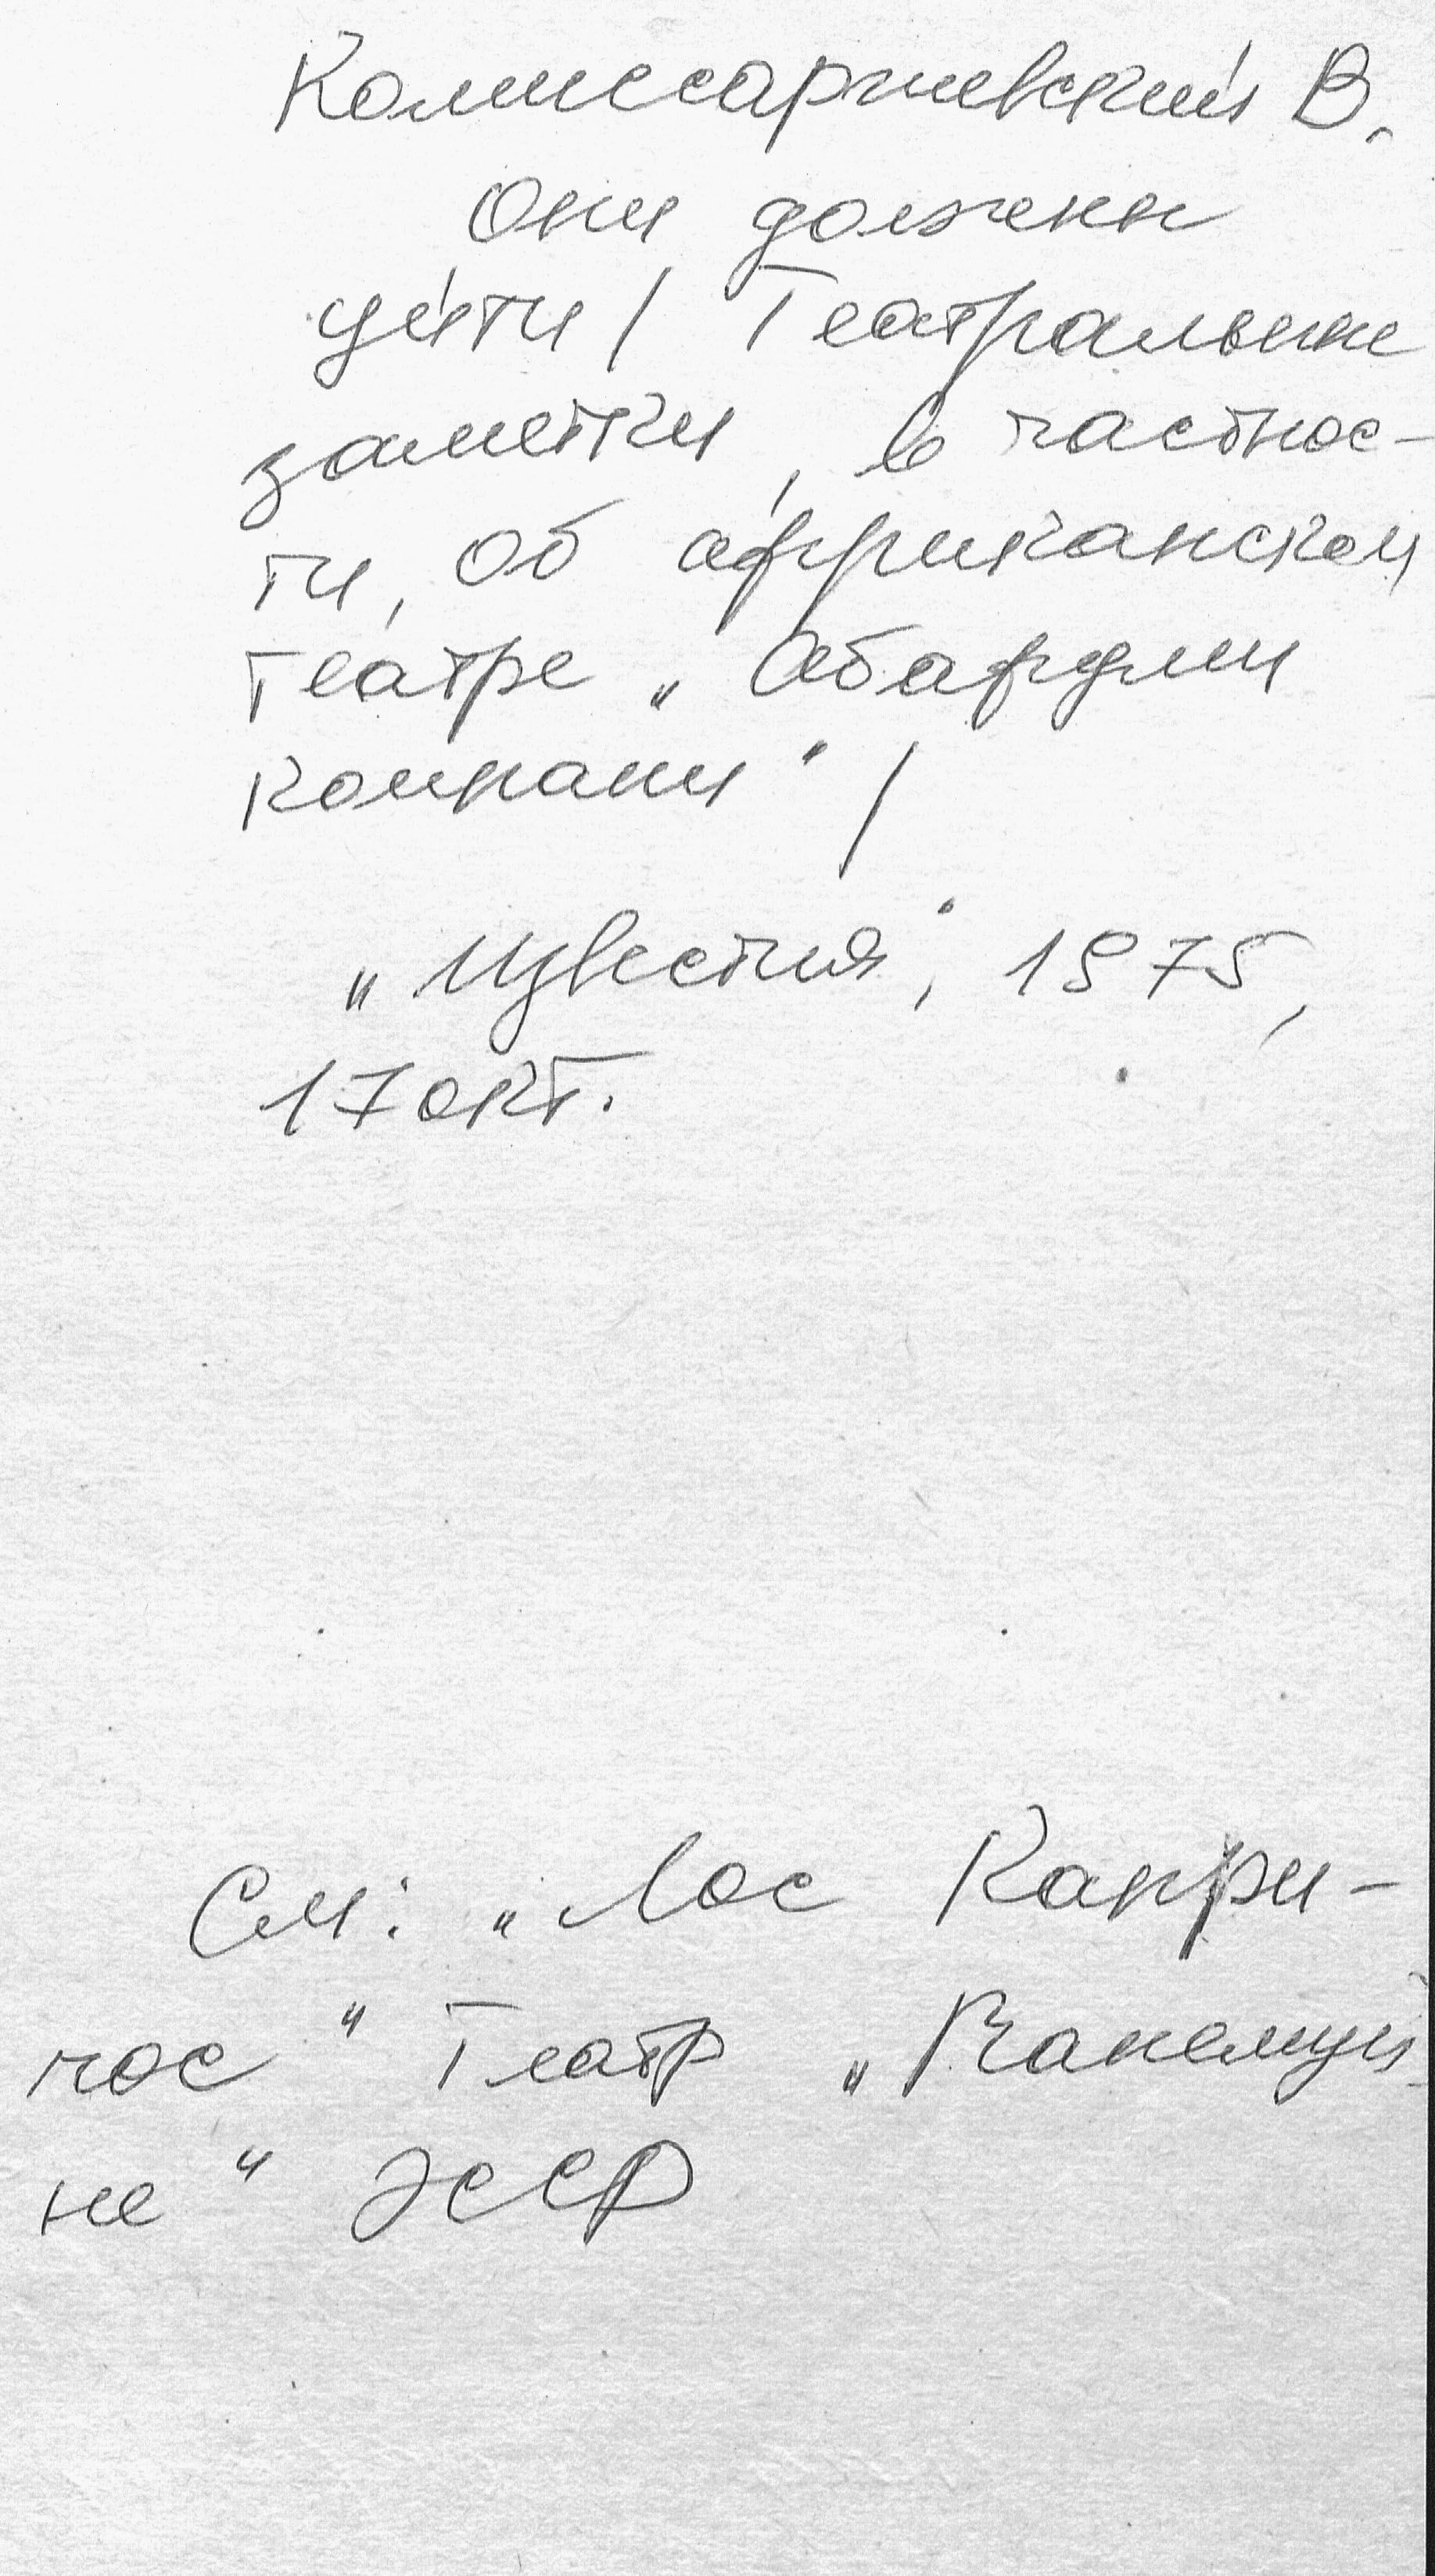 Комиссаржевский В.
Они должны
уйти / Театральные
заметки, в частнос-
ти, об африканском
театре „Абафуми
компани" /
„Известия", 1975,
17 окт.
См: „Лос Капри-
чос" Театр
не" ЭССР